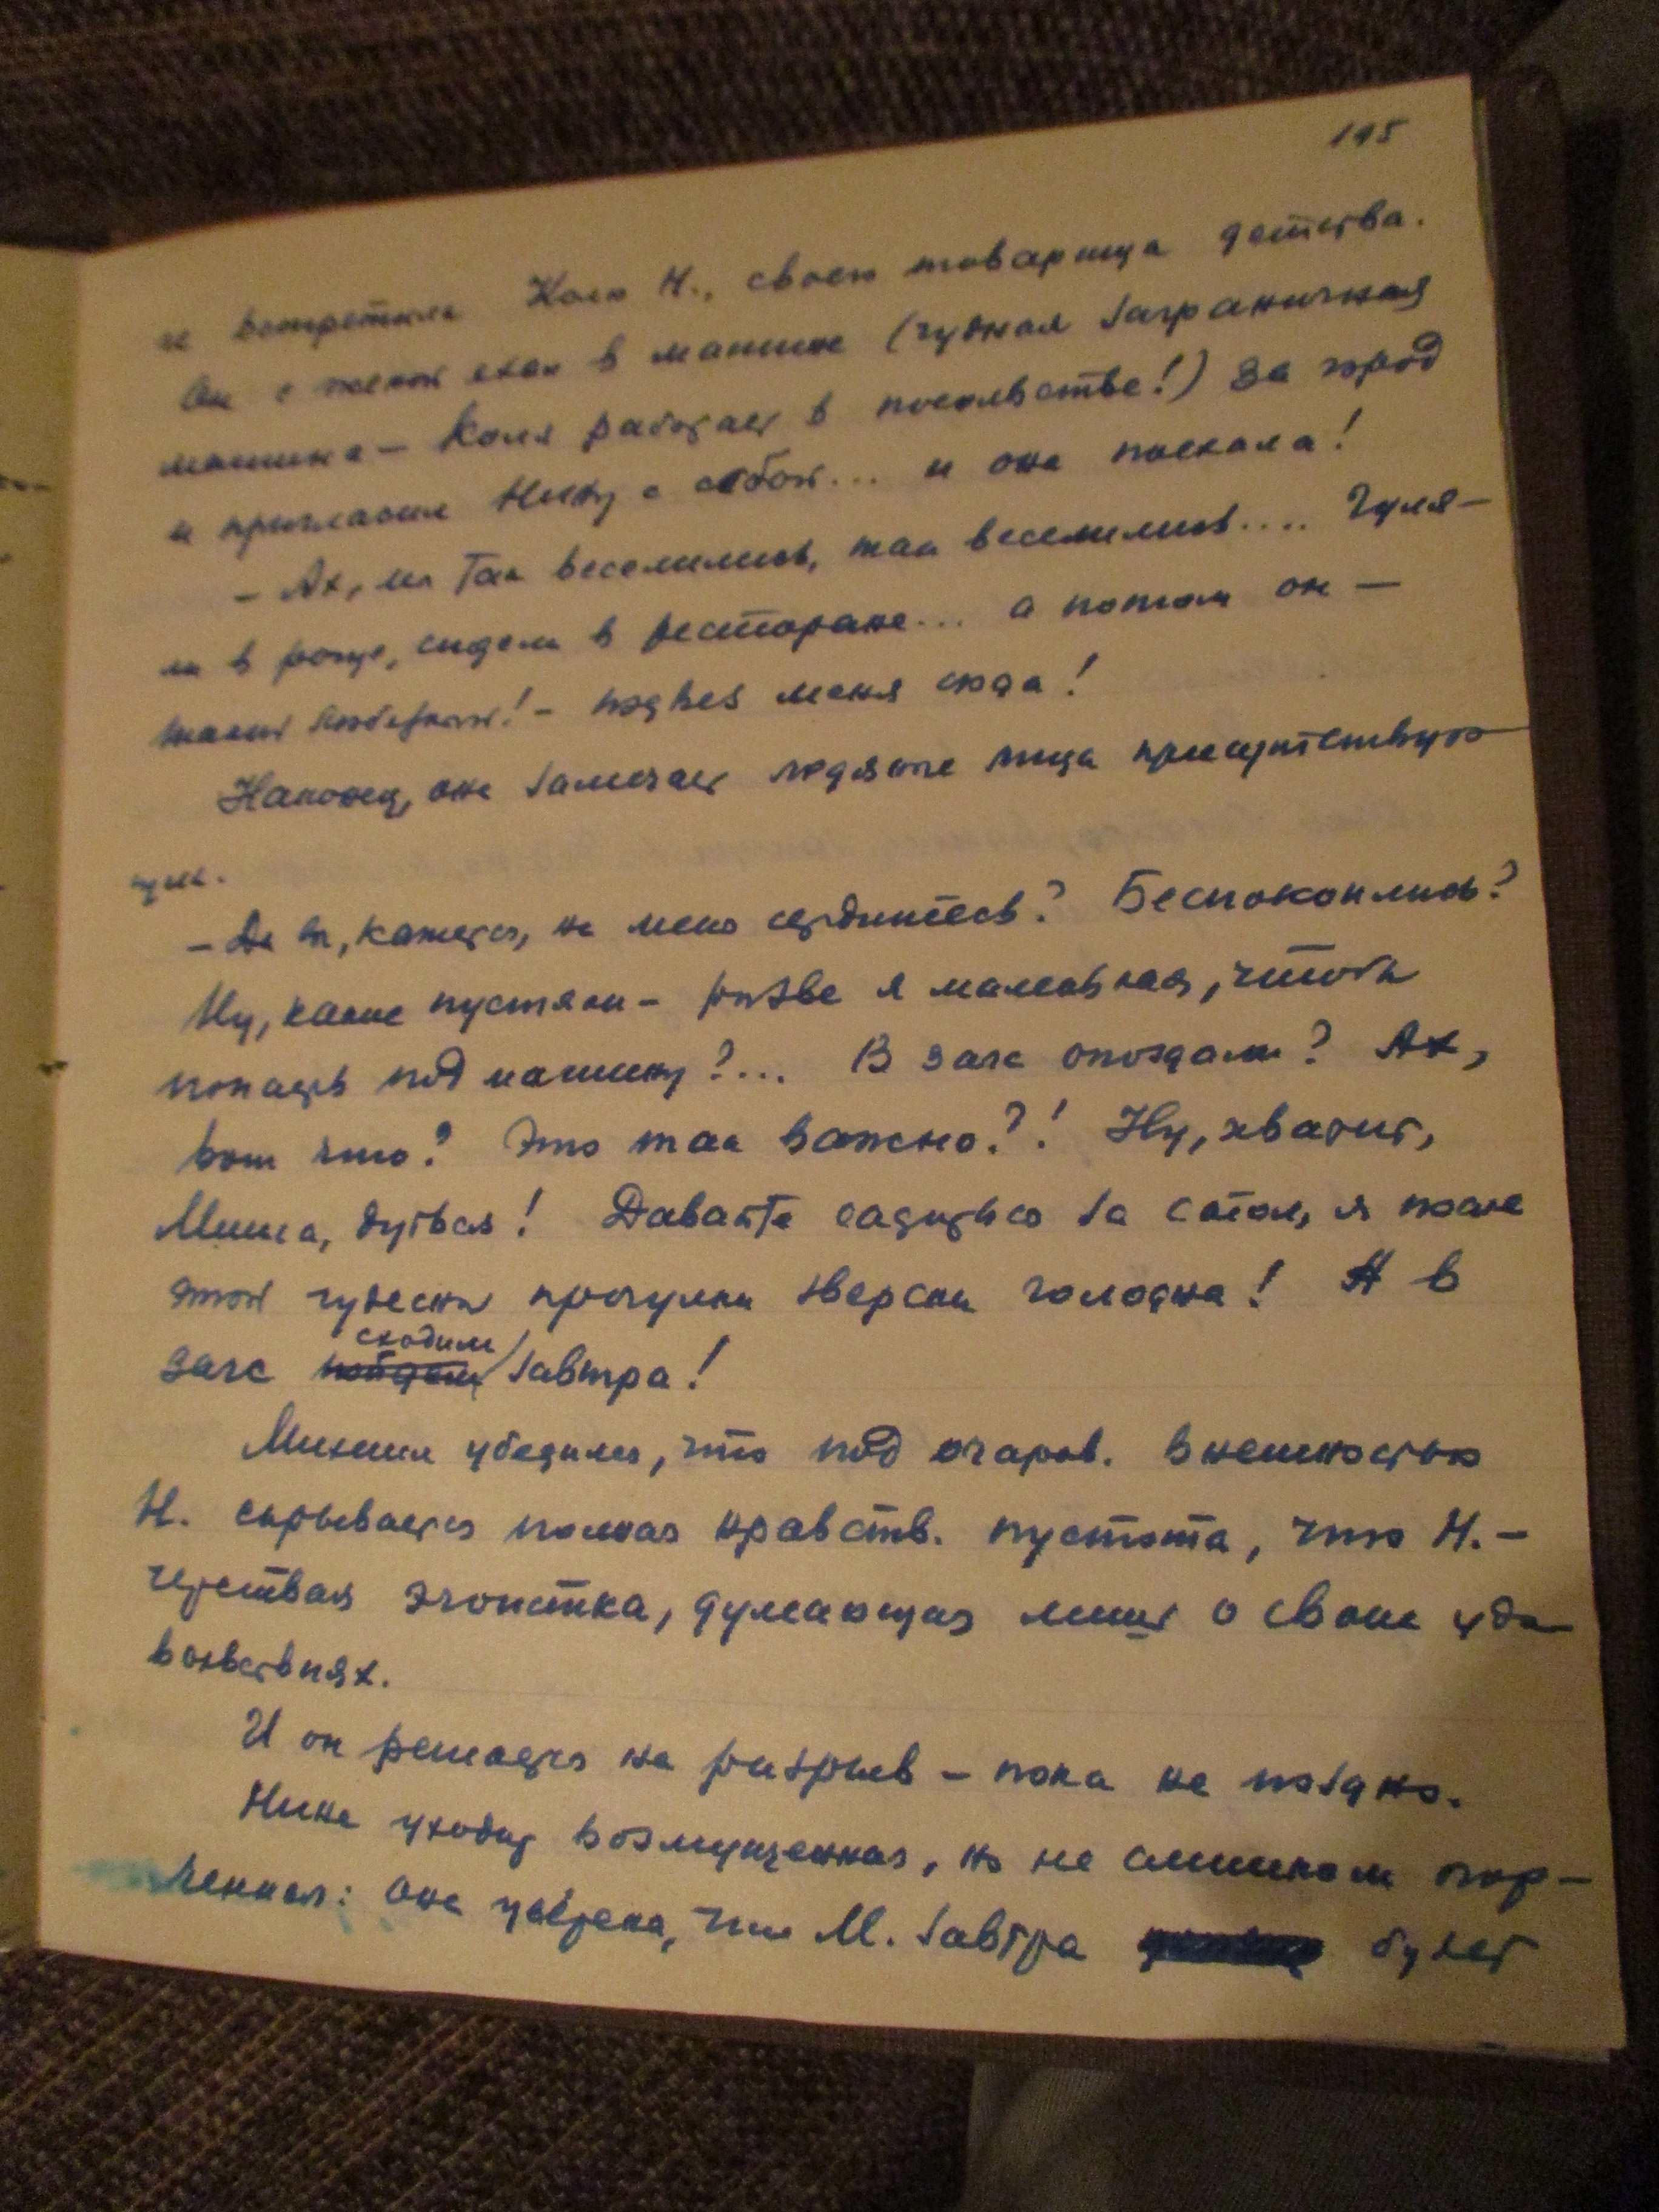 115
и встретила Колю Н., своего товарища детства.
Он с женой ехал в машине (чудная заграничная
машина — Коля работает в посольстве!) за город
и пригласил Нину с собой... и она поехала!
— Ах, мы так веселились, так веселились.... Гуля-
ли в роще, сидели в ресторане... а потом он —
такой любезный! — подвез меня сюда!
Наконец, она замечает ледяные лица присутствую
щих.
— Да вы, кажется, на меня сердитесь? Беспокоились?
Ну, какие пустяки — разве я маленькая, чтобы
попасть под машину?... В загс опоздали? Ах,
вот что? Это так важно?! Ну, хватит,
Миша, дуться! Давайте садиться за стол, я после
этой чудесной прогулки зверски голодна! А в
сходим
загс пойдем завтра!
Михаил убедился, что под очаров. внешностью
Н. скрывается полная нравств. пустота, что Н. —
черствая эгоистка, думающая лишь о своих удо
вольствиях.
И он решается на разрыв — пока не поздно.
Нина уходит возмущенная, но не слишком огор-
ченная: она уверена, что М. завтра будет